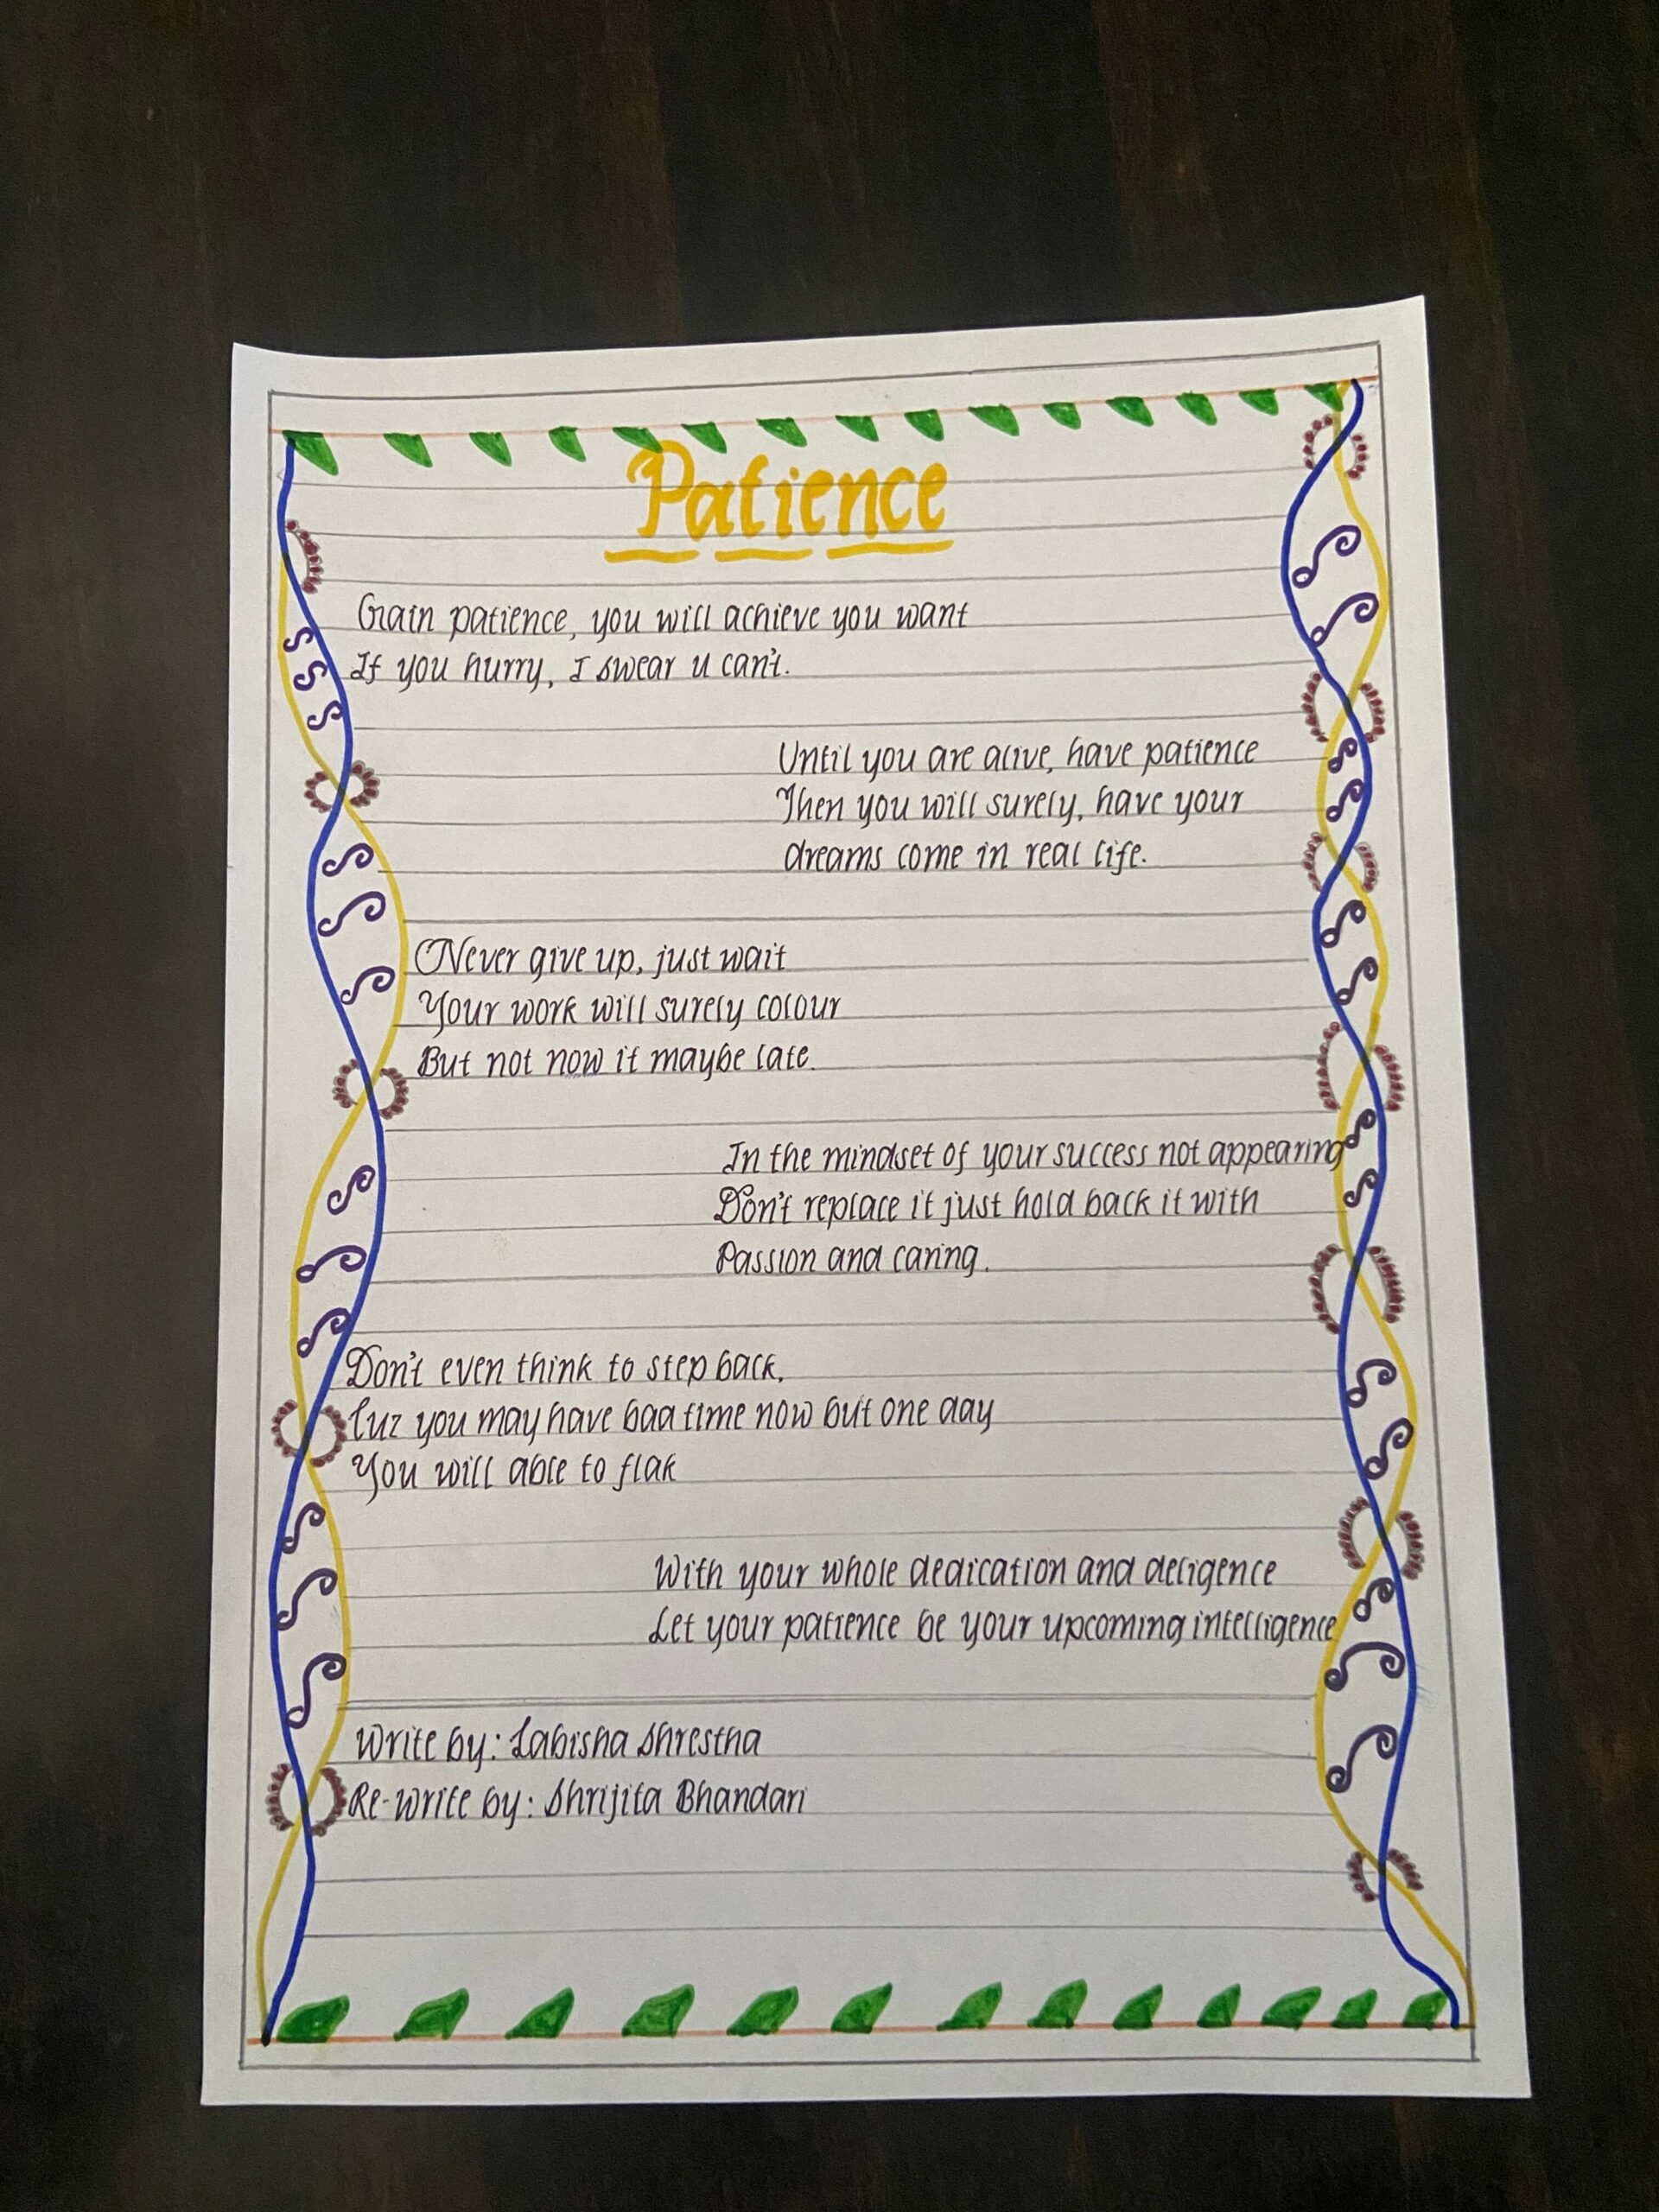 Patience
Gain patience, you will achieve you want
If you hurry, I swear u can't.
Until you are alive, have patience
Then you will surely, have your
dreams come in real life.
Never give up, just wait
Your work will surely colour
But not now it maybe late.
In the mindset of your success not appearing
Don't replace it just hold back it with
Passion and caring.
Don't even think to step back,
Cuz you may have bad time now but one day
You will able to flak
With your whole dedication and deligence
Let your patience be your upcoming intelligence
Write by: Labisha Shrestha
Re-write by: Shrijita Bhandari